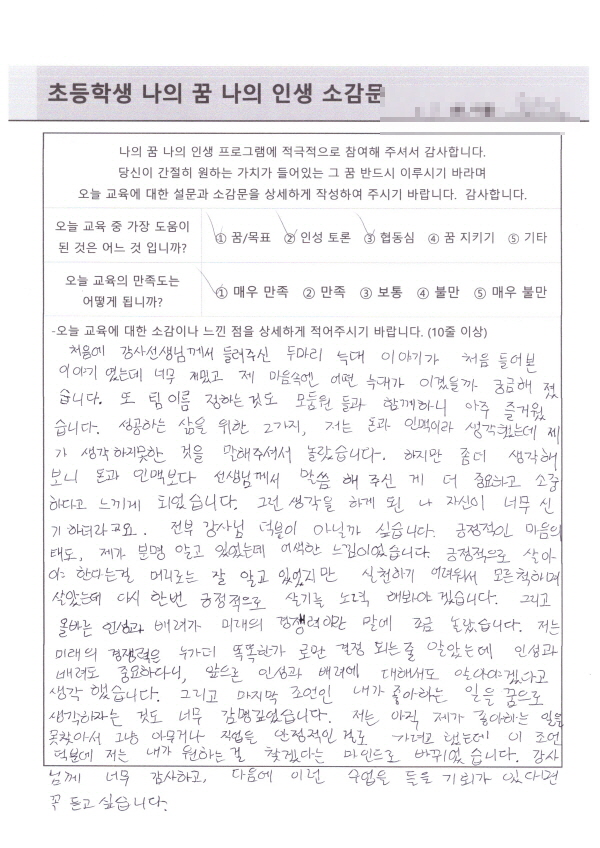 초등학생 나의 꿈 나의 인생 소감문
나의 꿈 나의 인생 프로그램에 적극적으로 참여해 주셔서 감사합니다.
당신이 간절히 원하는 가치가 들어있는 그 꿈 반드시 이루시기 바라며
오늘 교육에 대한 설문과 소감문을 상세하게 작성하여 주시기 바랍니다. 감사합니다.
오늘 교육 중 가장 도움이
된 것은 어느 것 입니까?
① 꿈/목표 ② 인성 토론 ③ 협동심 ④ 꿈 지키기 ⑤ 기타
오늘 교육의 만족도는
어떻게 됩니까?
① 매우 만족 ② 만족 ③ 보통 ④ 불만 ⑤ 매우 불만
-오늘 교육에 대한 소감이나 느낀 점을 상세하게 적어주시기 바랍니다. (10줄 이상)
처음에 강사선생님께서 들려주신 두마리 늑대 이야기가 처음 들어본
이야기 였는데 너무 재밌고 제 마음속엔 어떤 늑대가 이겼을까 궁금해 졌
습니다. 또 팀이름 정하는것도 모둠원 들과 함께하니 아주 즐거웠
습니다. 성공하는 삶을 위한 2가지, 저는 돈과 인맥이라 생각했는데 제
가 생각하지못한 것을 말해주셔서 놀랐습니다. 하지만 좀더 생각해
보니 돈과 인맥보다 선생님께서 말씀 해 주신 게 더 중요하고 소중
하다고 느끼게 되었습니다. 그런 생각을 하게 된 나 자신이 너무 신
기 하더라고요. 전부 강사님 덕분이 아닐까 싶습니다. 긍정적인 마음의
태도, 제가 분명 알고 있었는데 어색한 느낌이었습니다. 긍정적으로 살아
야 한다는걸 머리로는 잘 알고 있었지만 실천하기 어려워서 모른척하며
살았는데 다시 한번 긍정적으로 살기를 노력 해봐야 겠습니다. 그리고
올바른 인성과 배려가 미래의 경쟁력이란 말에 조금 놀랐습니다. 저는
미래의 경쟁력을 누가더 똑똑한가 로만 결정 되는줄 알았는데 인성과
배려도 중요하다니, 앞으론 인성과 배려에 대해서도 알아야겠다고
생각 했습니다. 그리고 마지막 조언인 내가 좋아하는 일을 꿈으로
생각하라는 것도 너무 감명깊었습니다. 저는 아직 제가 좋아하는 일을
못찾아서 그냥 아무거나 직업을 안정적인 걸로 가려고 했는데 이 조언
덕분에 저는 내가 원하는걸 찾겠다는 마인드로 바뀌었 습니다. 강사
님께 너무 감사하고, 다음에 이런 수업을 들을 기회가 있다면
꼭 듣고 싶습니다.